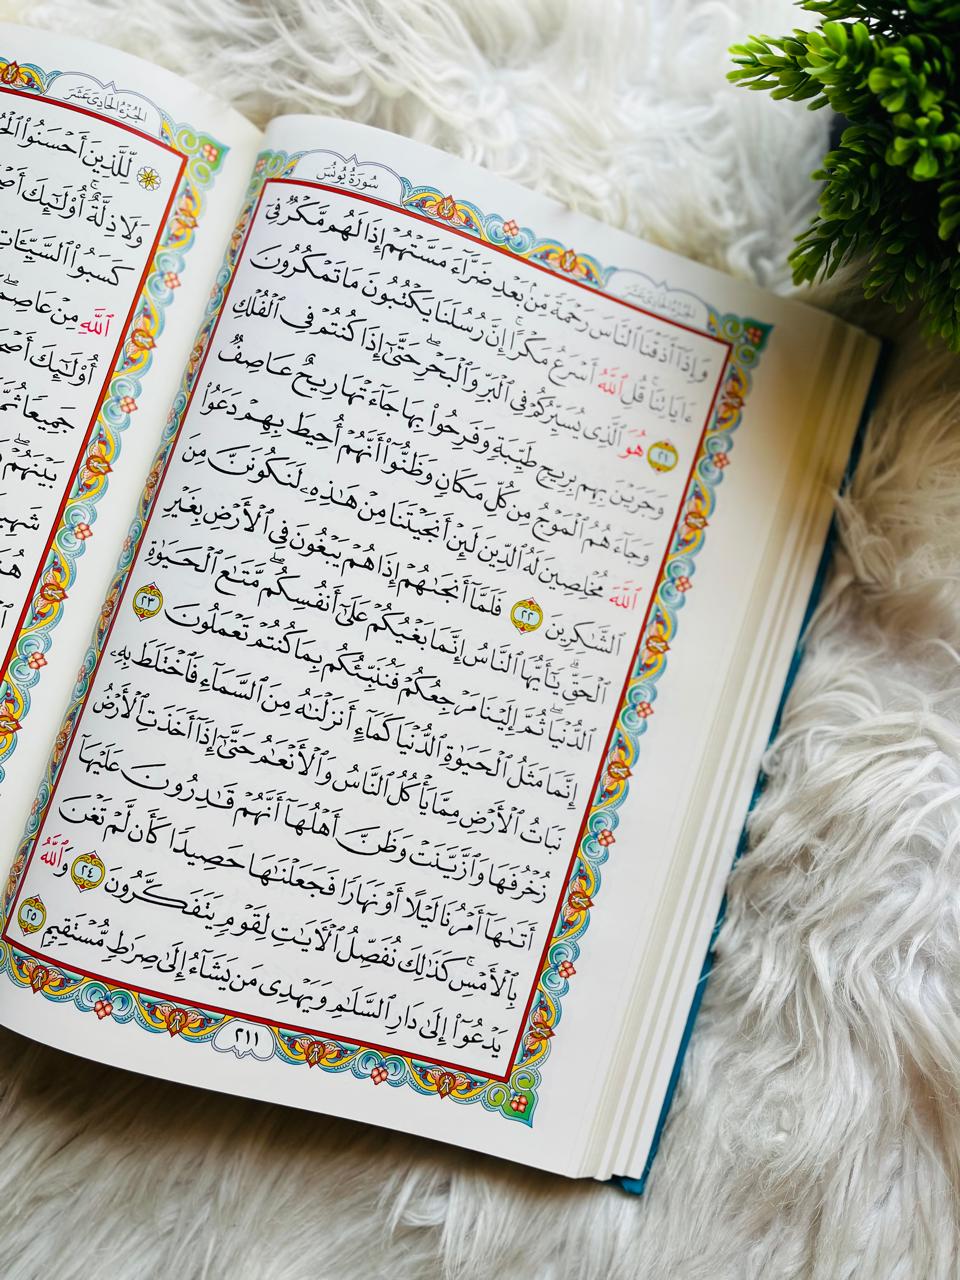 سُورَةُ يُونُسَ
الجُزْءُ الحَادِي عَشَرَ
وَإِذَآ أَذَقْنَا ٱلنَّاسَ رَحْمَةً مِّنۢ بَعْدِ ضَرَّآءَ مَسَّتْهُمْ إِذَا لَهُم مَّكْرٌ فِىٓ
ءَايَاتِنَاۚ قُلِ ٱللَّهُ أَسْرَعُ مَكْرًاۚ إِنَّ رُسُلَنَا يَكْتُبُونَ مَا تَمْكُرُونَ
٢١ هُوَ ٱلَّذِى يُسَيِّرُكُمْ فِى ٱلْبَرِّ وَٱلْبَحْرِۖ حَتَّىٰٓ إِذَا كُنتُمْ فِى ٱلْفُلْكِ
وَجَرَيْنَ بِهِم بِرِيحٍ طَيِّبَةٍ وَفَرِحُوا۟ بِهَا جَآءَتْهَا رِيحٌ عَاصِفٌ
وَجَآءَهُمُ ٱلْمَوْجُ مِن كُلِّ مَكَانٍ وَظَنُّوٓا۟ أَنَّهُمْ أُحِيطَ بِهِمْ دَعَوُا۟
ٱللَّهَ مُخْلِصِينَ لَهُ ٱلدِّينَ لَئِنْ أَنجَيْتَنَا مِنْ هَٰذِهِۦ لَنَكُونَنَّ مِنَ
ٱلشَّٰكِرِينَ ٢٢ فَلَمَّآ أَنجَىٰهُمْ إِذَا هُمْ يَبْغُونَ فِى ٱلْأَرْضِ بِغَيْرِ
ٱلْحَقِّۗ يَٰٓأَيُّهَا ٱلنَّاسُ إِنَّمَا بَغْيُكُمْ عَلَىٰٓ أَنفُسِكُمۖ مَّتَٰعَ ٱلْحَيَوٰةِ
ٱلدُّنْيَاۖ ثُمَّ إِلَيْنَا مَرْجِعُكُمْ فَنُنَبِّئُكُم بِمَا كُنتُمْ تَعْمَلُونَ ٢٣
إِنَّمَا مَثَلُ ٱلْحَيَوٰةِ ٱلدُّنْيَا كَمَآءٍ أَنزَلْنَٰهُ مِنَ ٱلسَّمَآءِ فَٱخْتَلَطَ بِهِۦ
نَبَاتُ ٱلْأَرْضِ مِمَّا يَأْكُلُ ٱلنَّاسُ وَٱلْأَنْعَٰمُ حَتَّىٰٓ إِذَآ أَخَذَتِ ٱلْأَرْضُ
زُخْرُفَهَا وَٱزَّيَّنَتْ وَظَنَّ أَهْلُهَآ أَنَّهُمْ قَٰدِرُونَ عَلَيْهَآ
أَتَىٰهَآ أَمْرُنَا لَيْلًا أَوْ نَهَارًا فَجَعَلْنَٰهَا حَصِيدًا كَأَن لَّمْ تَغْنَ
بِٱلْأَمْسِۚ كَذَٰلِكَ نُفَصِّلُ ٱلْأٓيَٰتِ لِقَوْمٍ يَتَفَكَّرُونَ ٢٤ وَٱللَّهُ
يَدْعُوٓا۟ إِلَىٰ دَارِ ٱلسَّلَٰمِ وَيَهْدِى مَن يَشَآءُ إِلَىٰ صِرَٰطٍ مُّسْتَقِيمٍ ٢٥
٢١١
الجُزْءُ الحَادِي عَشَرَ
لِّلَّذِينَ أَحْسَنُوا۟
وَلَا ذِلَّةٌۚ أُو۟لَٰٓئِكَ
كَسَبُوا۟ ٱلسَّيِّـَٔاتِ
ٱللَّهِ مِنْ عَاصِمٍۖ
أُو۟لَٰٓئِكَ
جَمِيعًا ثُمَّ
بَيْنَهُمْۖ